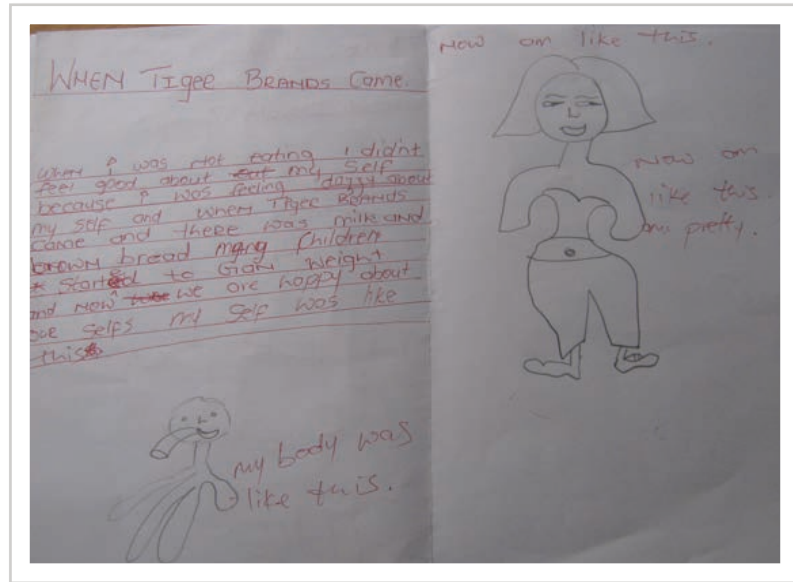 WHEN TIGEE BRANDS COME.
when i was not eating i didn't
feel good about eat my self
because i was feeling dazzy about
my self and when TIGEE BRANDS
came and there was milk and
brown bread many children
started to Gain weight
and NOW we are happy about
our selfs my self was like
this
my body was
like this.
Now am like this.
Now am
like this.
am pretty.